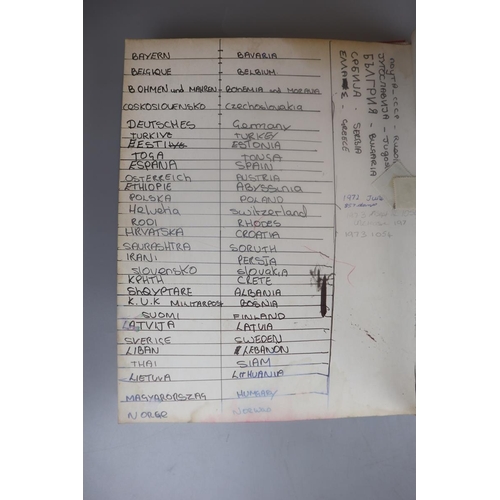 BAYERN BAVARIA
BELGIQUE BELGIUM
BOHMEN und MAHREN BOHEMIA and MORAVIA
COSKOSLOVENSKO Czechoslovakia
DEUTSCHES Germany
TURKIYE TURKEY
EESTI ESTONIA
TOGA TONGA
ESPANA SPAIN
OSTERREICH AUSTRIA
ETHIOPIE Abyssinia
POLSKA POLAND
Helvetia Switzerland
RODI RHODES
HRVATSKA CROATIA
SAURASHTRA SORUTH
IRANI PERSIA
Slovensko Slovakia
KPHTH CRETE
SHQYPTARE ALBANIA
K.U.K MILITARPOST BOSNIA
SUOMI FINLAND
LATVIJA LATVIA
SVERIGE SWEDEN
LIBAN LEBANON
THAI SIAM
LIETUVA LITHUANIA
MAGYARORSZAG HUNGARY
NORGE
ПОЧТА_СССР -
ЈУГОСЛАВИЈА -
БЪЛГРИЯ - BULGARIA
СРБИЈА . SERBIA
GREECE